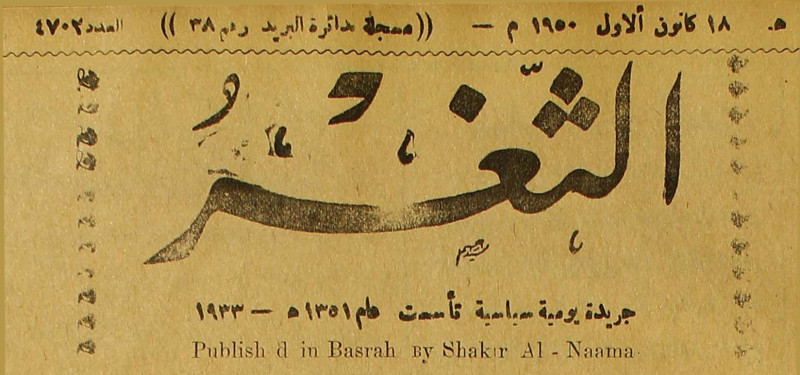 هـ. ١٨ كانون الاول ١٩٥٠ م — ((مسجلة بدائرة البريد رقم ٣٨)) العدد ٤٧٠٢
الثَّغْرُ
جريدة يومية سياسية تأسست عام ١٣٥١ه — ١٩٣٣
Publish d in Basrah By Shakir Al - Naama